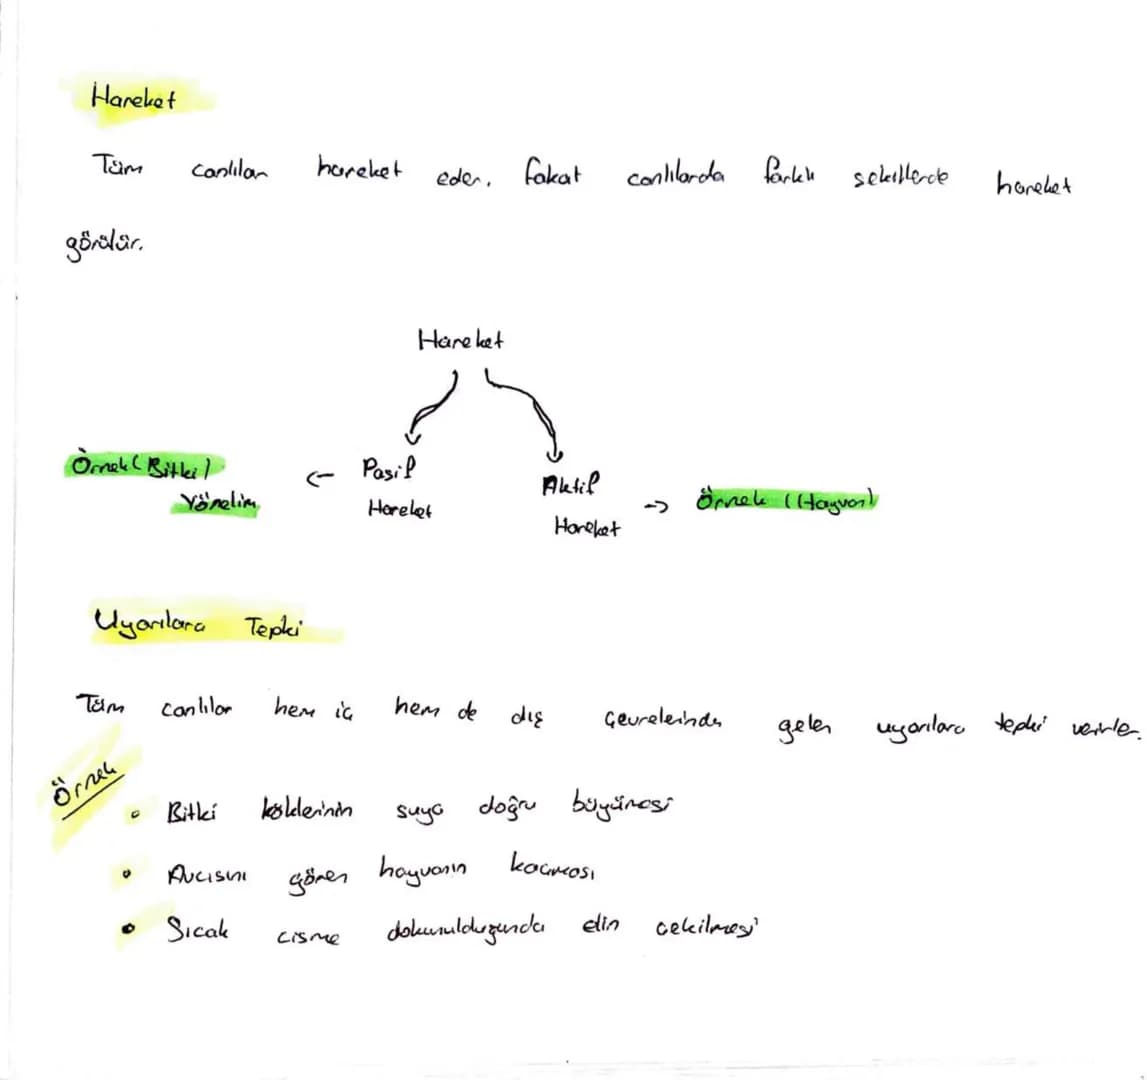 Hareket
Tüm canlılar hareket eder, fakat canlılarda farklı şekillerde hareket
görülür.
Hareket
Örnek (Bitki) ← Pasif Aktif
Yönelim Hareket Hareket → Örnek (Hayvan)
Uyarılara Tepki
Tüm canlılar hem iç hem de dış çevrelerinde gelen uyarılara tepki verirler.
Örnek
• Bitki köklerinin suya doğru büyümesi
• Avcısını gören hayvanın kaçması
• Sıcak cisme dokunulduğunda elin çekilmesi